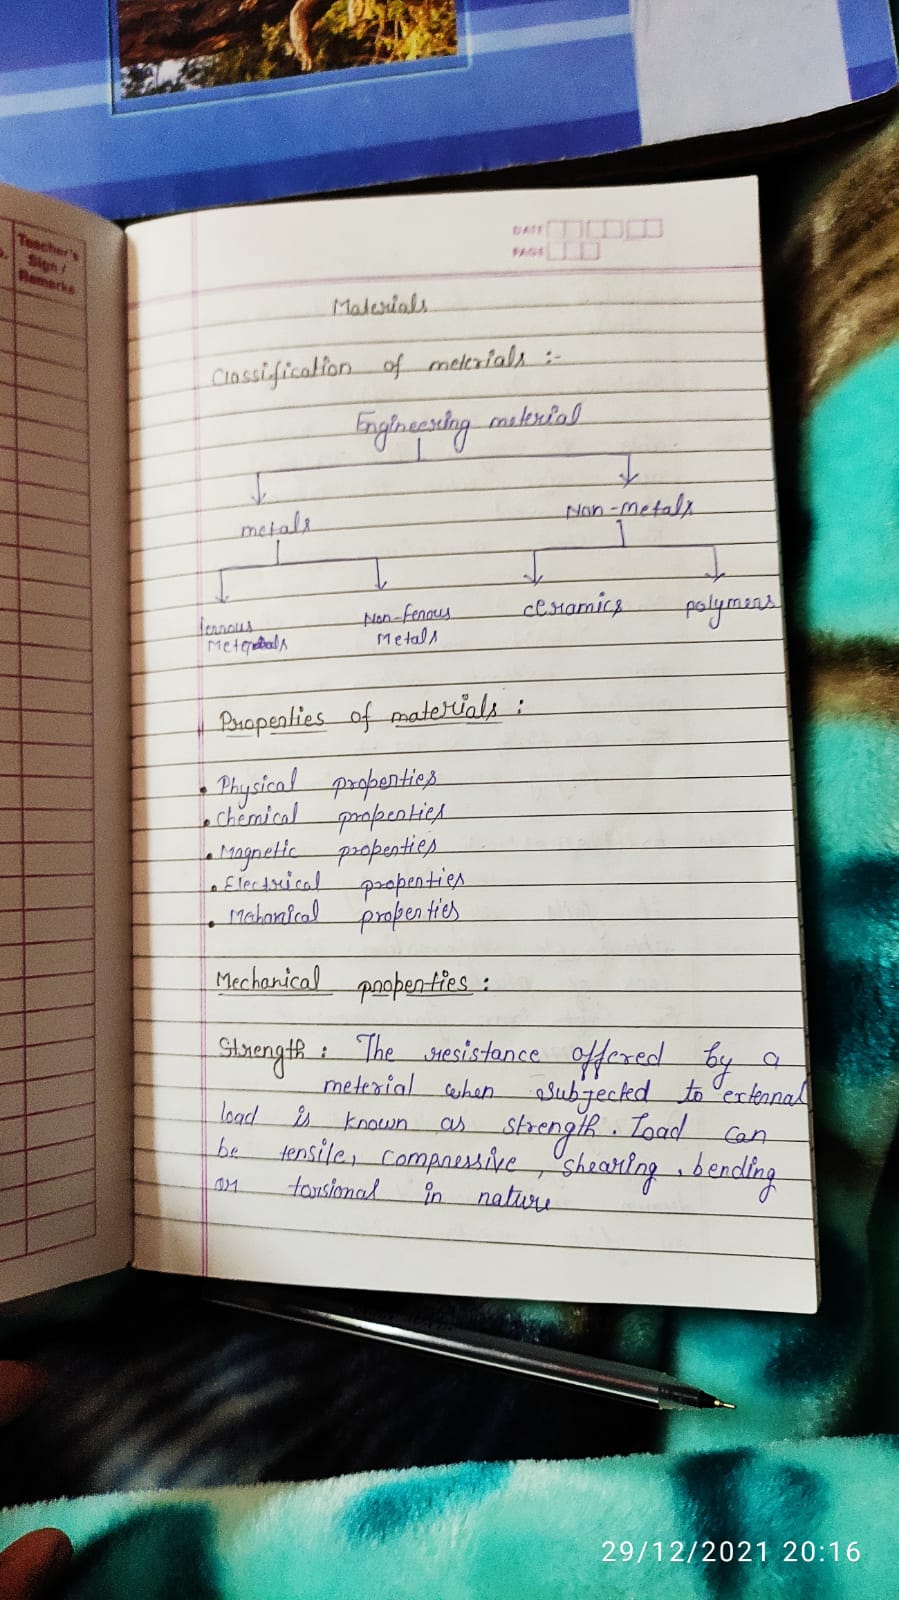 Teacher's
Sign /
Remarks
DATE
PAGE
Materials
Classification of meterials :-
Engineering meterial
metals
Non-metals
ferrous
Metals
Non-ferrous
Metals
ceramics
polymers
Properties of materials :
• Physical properties
• Chemical properties
• Magnetic properties
• Electrical properties
• Mehanical properties
Mechanical properties :
Strength : The resistance offered by a
meterial when subjected to external
load is known as strength. Load can
be tensile, compressive, shearing, bending
or torsional in nature
29/12/2021 20:16